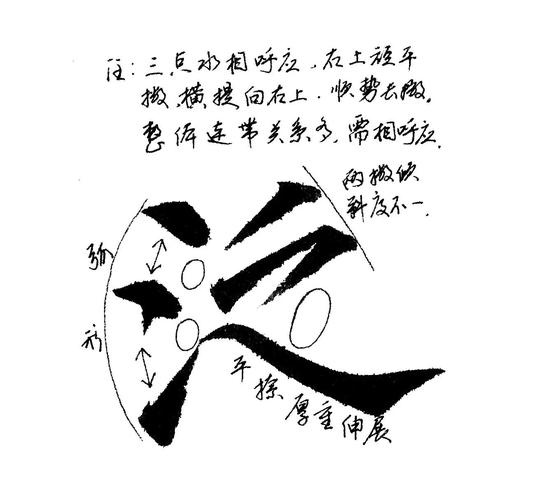 注:三点水相呼应,右上短平
撇,横提向右上,顺势去撇。
整体连带关系多,需相呼应。
两撇倾
斜度不一。
弧
形
平捺厚重伸展